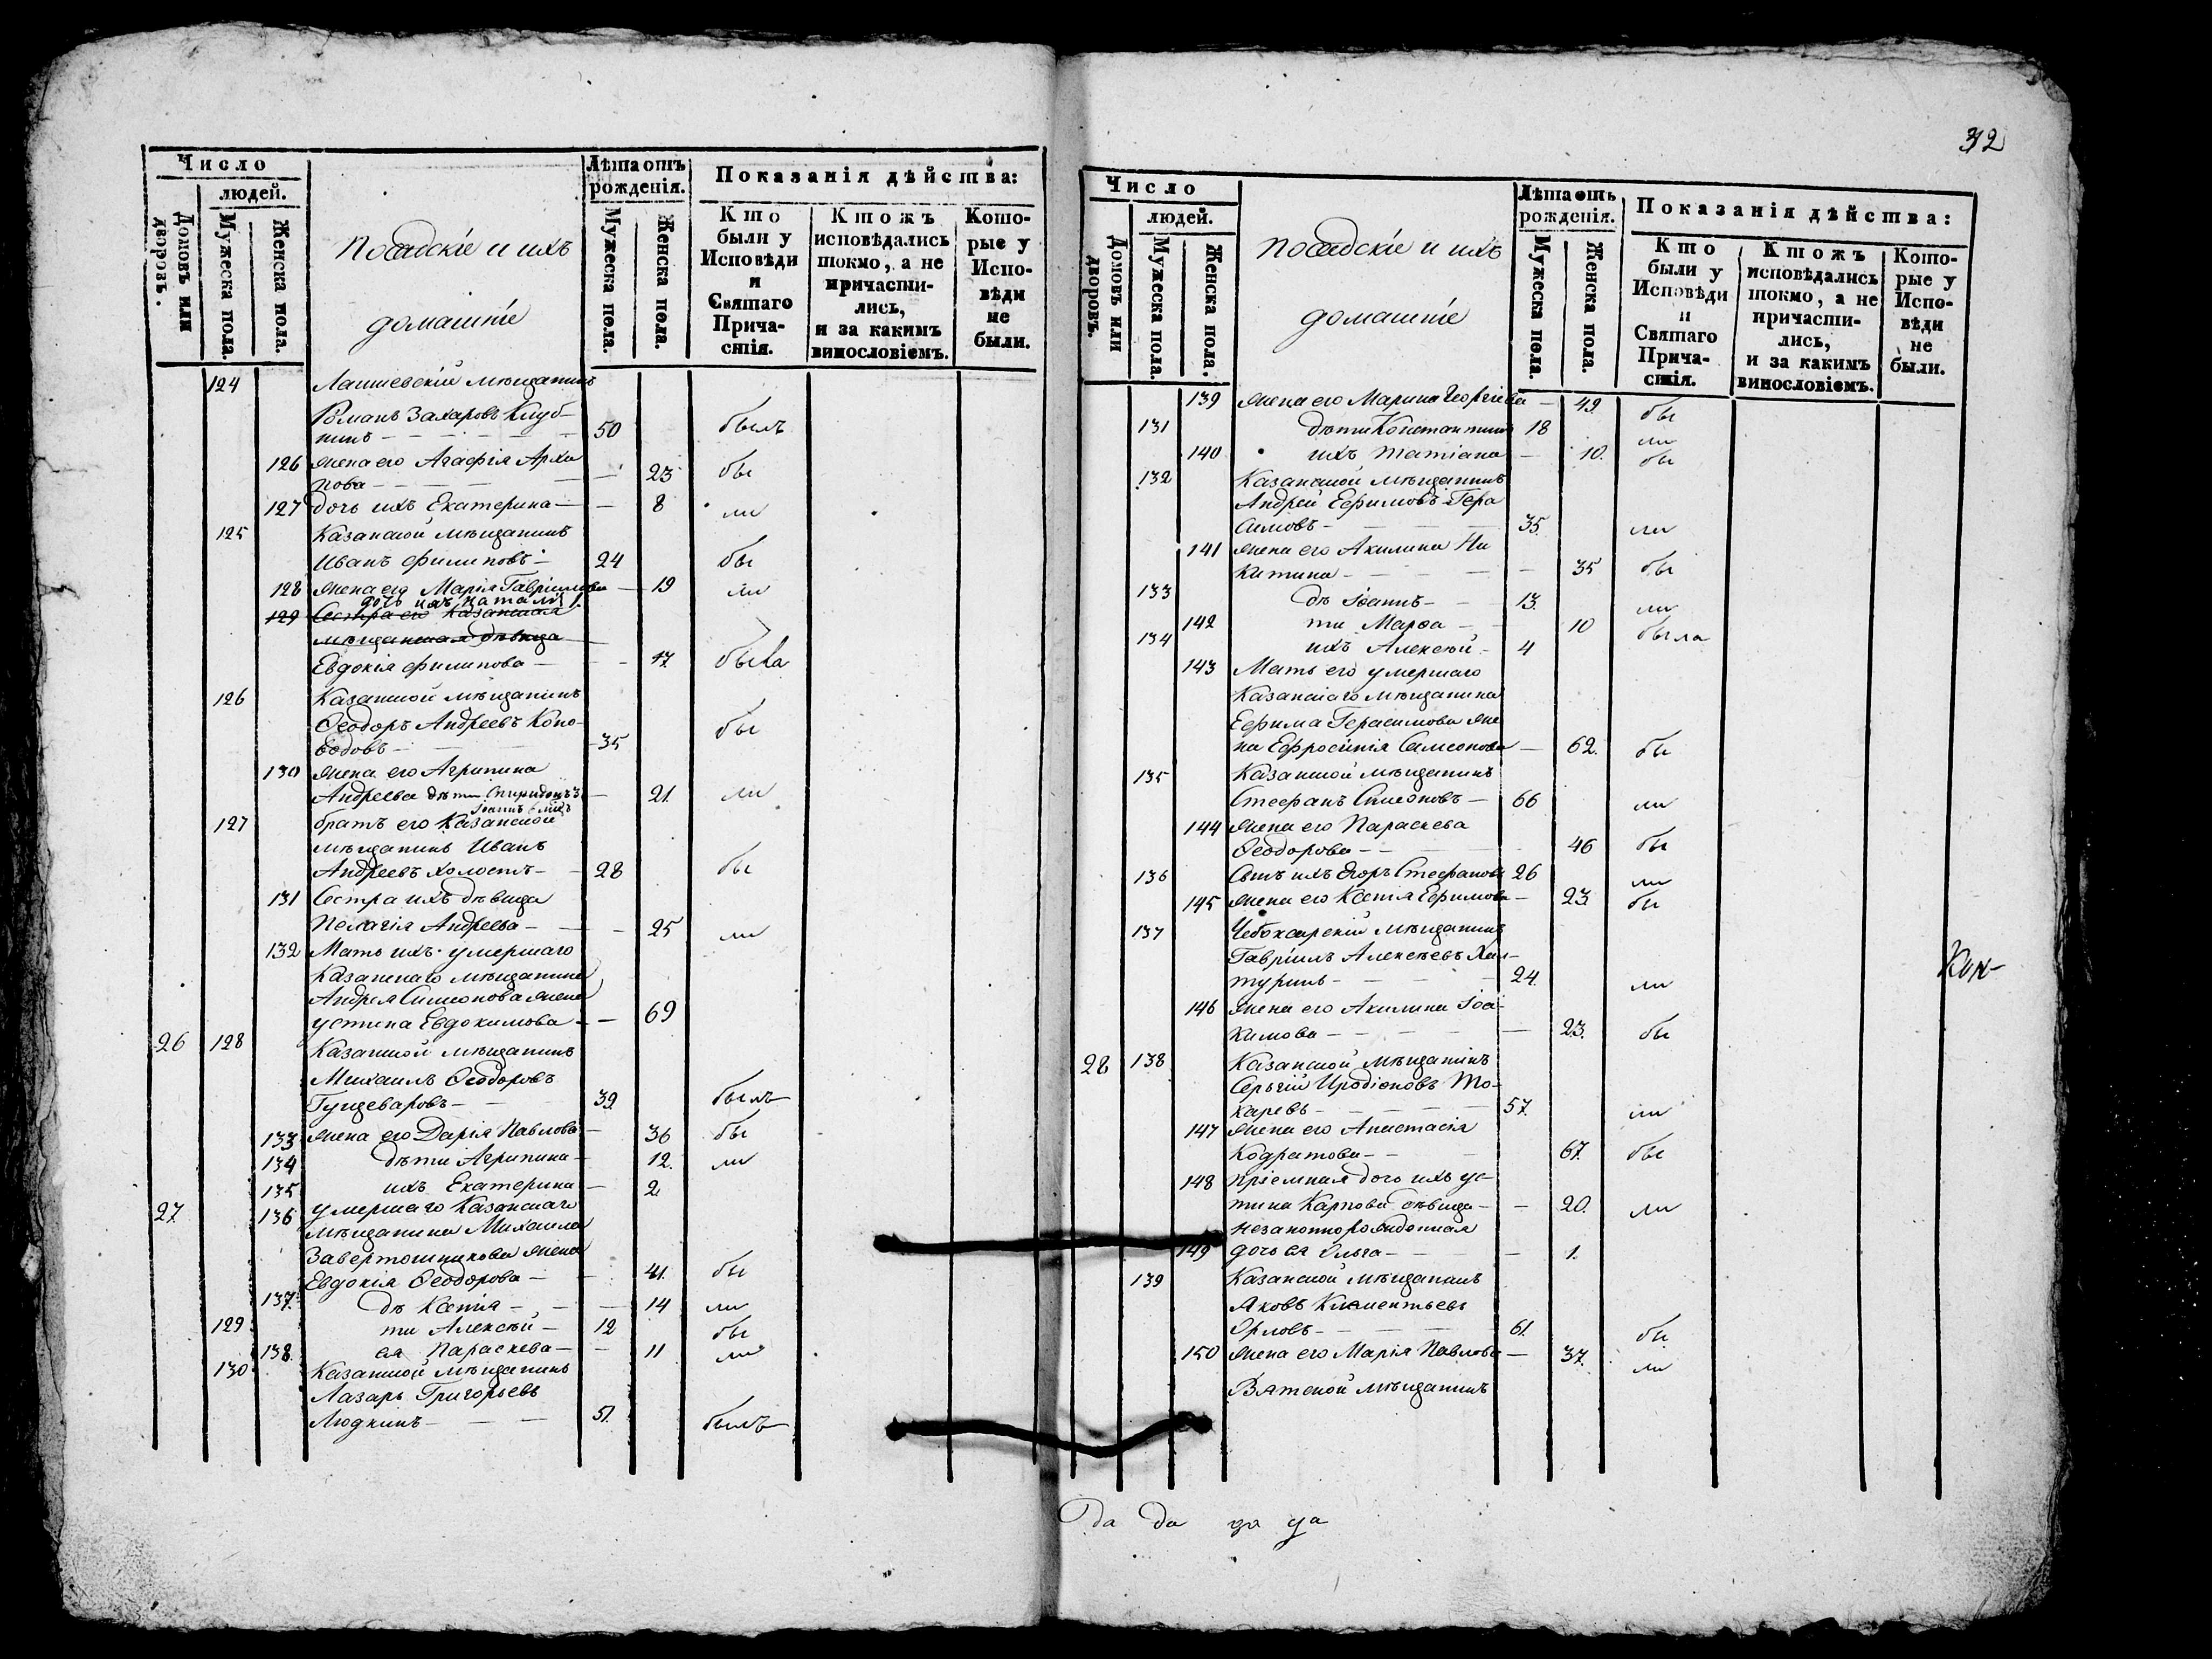 Число
людей.
Домовъ или дворовъ.
Мужеска пола.
Женска пола.
Посадскіе и ихъ
домашніе
Лѣта отъ рожденія.
Мужеска пола.
Женска пола.
Показанія дѣйства:
Кто были у Исповѣди и Святаго Прича-стія.
Ктожъ исповѣдались токмо, а не причасти-лись, и за какимъ винословіемъ.
Кото-рые у Испо-вѣди не были.
124 Лаишевскій мѣщанинъ
Романъ Захаровъ Клуб-
нинъ — 50 былъ
126 жена его Агафія Архи
пова — 23 бы
127 дочь ихъ Екатерина — 8 ли
125 Казанской мѣщанинъ
Иванъ Филиповъ — 24 бы
128 жена его Марія Гавріилова — 19 ли
дочь ихъ Наталія 1.
129 Сестра его Казанская
мѣщанская дѣвица
Евдокія Филипова — 17 была
126 Казанской мѣщанинъ
Ѳеодоръ Андреевъ Коно-
водовъ — 35 бы
130 жена его Агрипина
Андреева дѣти Спиридонъ 3 — 21. ли
Іоаннъ
127 братъ его Казанской
мѣщанинъ Иванъ
Андреевъ холостъ — 28 бы
131 Сестра ихъ дѣвица
Пелагія Андреева — 25 ли
132 Мать ихъ умершаго
Казанскаго мѣщанина
Андрея Симеонова жена
Устина Евдокимова — 69
26 128 Казанской мѣщанинъ
Михаилъ Ѳеодоровъ
Гущеваровъ — 39. былъ
133 жена его Дарія Павлова — 36 бы
134 дѣти Агрипина — 12. ли
135 ихъ Екатерина — 2
27 136 умершаго Казанскаго
мѣщанина Михаила
Завертошникова жена
Евдокія Ѳеодорова — 41. бы
137. дѣ Ксенія — 14 ли
129 ти Алексѣй — 12 бы
138. ея Параскева — 11 ли
130 Казанской мѣщанинъ
Лазарь Григорьевъ
Людкинъ — 51. былъ
32
Число
людей.
Домовъ или дворовъ.
Мужеска пола.
Женска пола.
Посадскіе и ихъ
домашніе
Лѣта отъ рожденія.
Мужеска пола.
Женска пола.
Показанія дѣйства:
Кто были у Исповѣди и Святаго Прича-стія.
Ктожъ исповѣдались токмо, а не причасти-лись, и за какимъ винословіемъ.
Кото-рые у Испо-вѣди не были.
139 жена его Марина Георгіева — 49. бы
131 дѣти Константинъ 18 ли
140 ихъ Татіана — 10. бы
132 Казанской мѣщанинъ
Андрей Ефимовъ Гера
симовъ — 35. ли
141 жена его Акилина Ни
китина — 35 бы
133 дѣ Іоаннъ — 13. ли
142 ти Марѳа — 10 была
134 ихъ Алексѣй — 4
143 Мать его умершаго
Казанскаго мѣщанина
Ефима Герасимова же
на Ефросинія Самсонова — 62. бы
135 Казанской мѣщанинъ
Стефанъ Симеоновъ — 66 ли
144 жена его Параскева
Ѳеодорова — 46 бы
136 Сынъ ихъ Егоръ Стефановъ 26 ли
145 жена его Ксенія Ефимова — 23 бы
137 Чебоксарскій мѣщанинъ
Гавріилъ Алексѣевъ Хал-
туринъ — 24. ли
146 жена его Акилина Іоа-
кимова — 23. бы
28 138 Казанской мѣщанинъ
Сергій Иродіоновъ То-
каревъ — 57. ли
147 жена его Анастасія
Кодратова — 67. бы
148 пріемная дочь ихъ Ус-
тина Карпова дѣвица — 20. ли
незаконнорожденная
149 дочь ея Ольга — 1.
139 Казанской мѣщанинъ
Яковъ Климентьевъ
Орловъ — 61. бы
150 жена его Марія Павлова — 37. ли
Вятской мѣщанинъ
Кон-
Да да да да